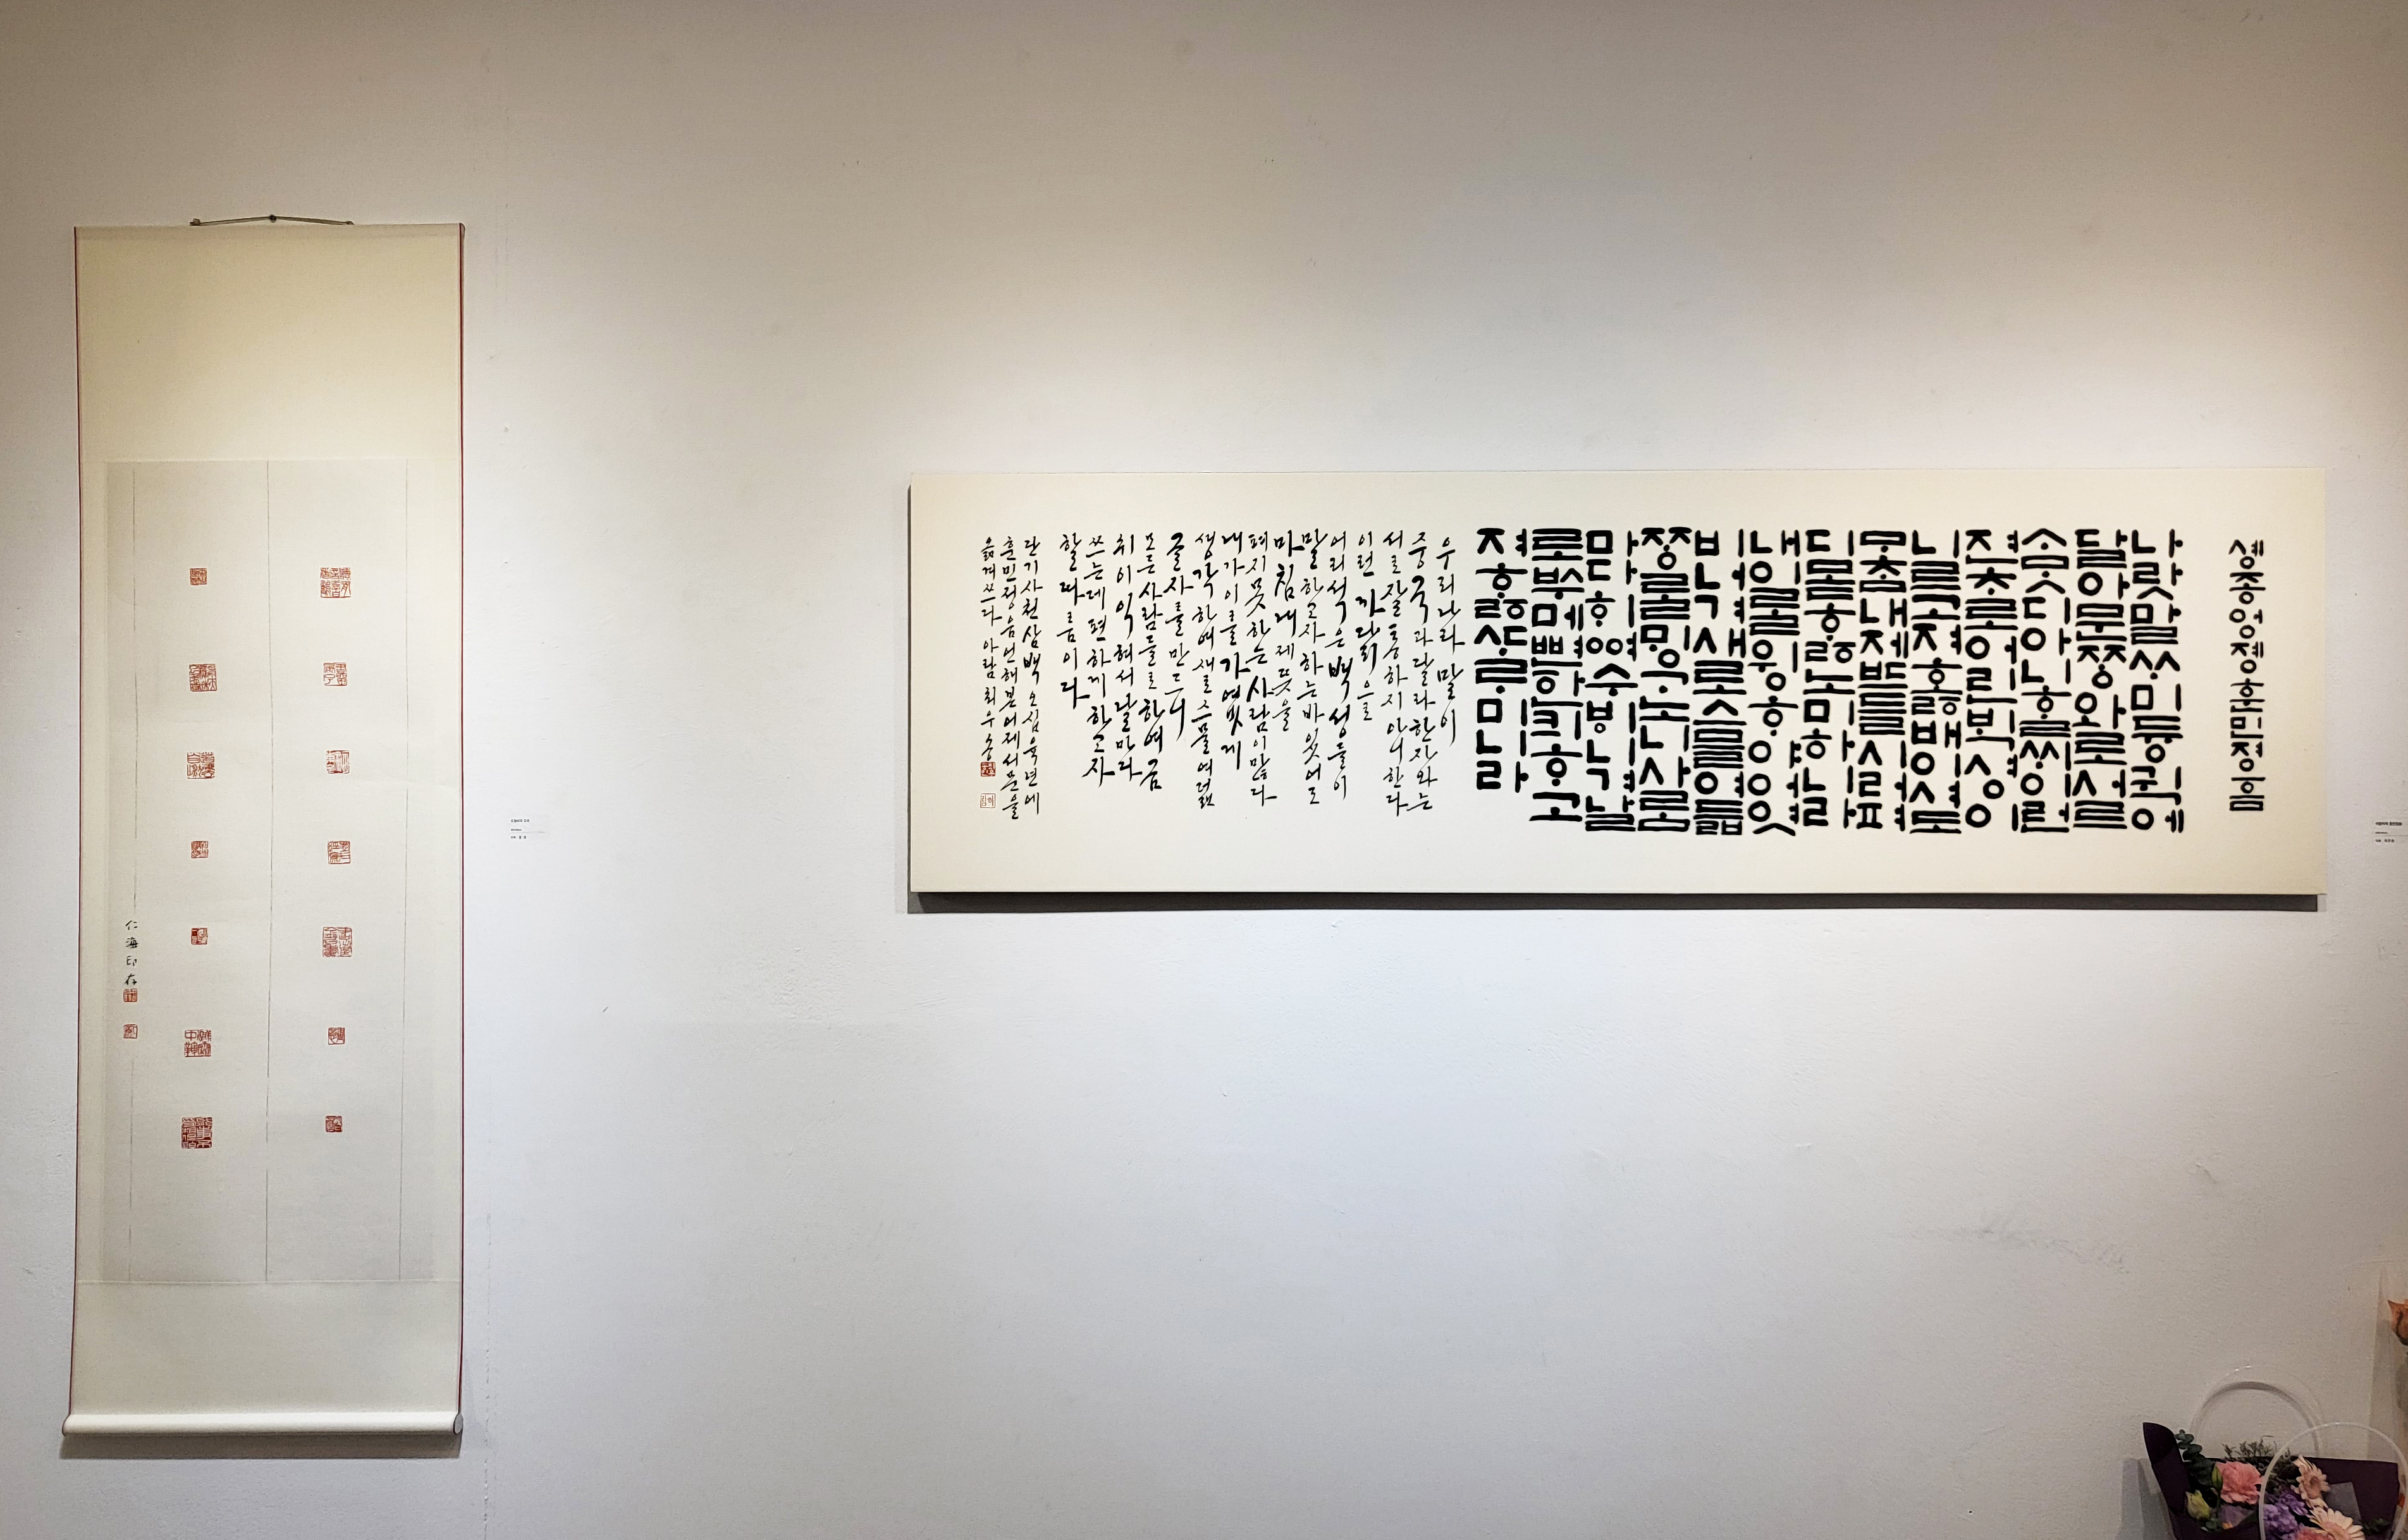 솅종엉졩훈민졍ᅙᅳᆷ
나랏말ᄊᆞ미듕귁에
달아문ᄍᆞᆼ와로서르
ᄉᆞᄆᆞᆺ디아니ᄒᆞᆯᄊᆡ이런
젼ᄎᆞ로어린ᄇᆡᆨ셩이
니르고져호ᇙ배이셔도
ᄆᆞᄎᆞᆷ내제ᄠᅳ들시러펴
디몯ᄒᆞᇙ노미하니라
내이ᄅᆞᆯ윙ᄒᆞ야어엿
비너겨새로스믈여듧
ᄍᆞᆼᄅᆞᆯᄆᆡᇰᄀᆞ노니사ᄅᆞᆷ
마다ᄒᆡᅇᅧ수ᄫᅵ니겨날
로ᄡᅮ메뼌한킈ᄒᆞ고
져ᄒᆞᇙᄯᆞᄅᆞ미니라
우리나라말이
중국과달라한자와는
서로잘통하지아니한다
이런까닭으로
어리석은백성들이
말하고자하는바있어도
마침내제뜻을
펴지못하는사람이많다
내가이를가엾게
생각하여새로스물여덟
글자를만드니
모든사람들로하여금
쉬이익혀서날마다
쓰는데편하게하고자
할따름이다
단기사천삼백오십육년에
훈민정음언해본어제서문을
옮겨쓰다 아람 최우송
仁海印存